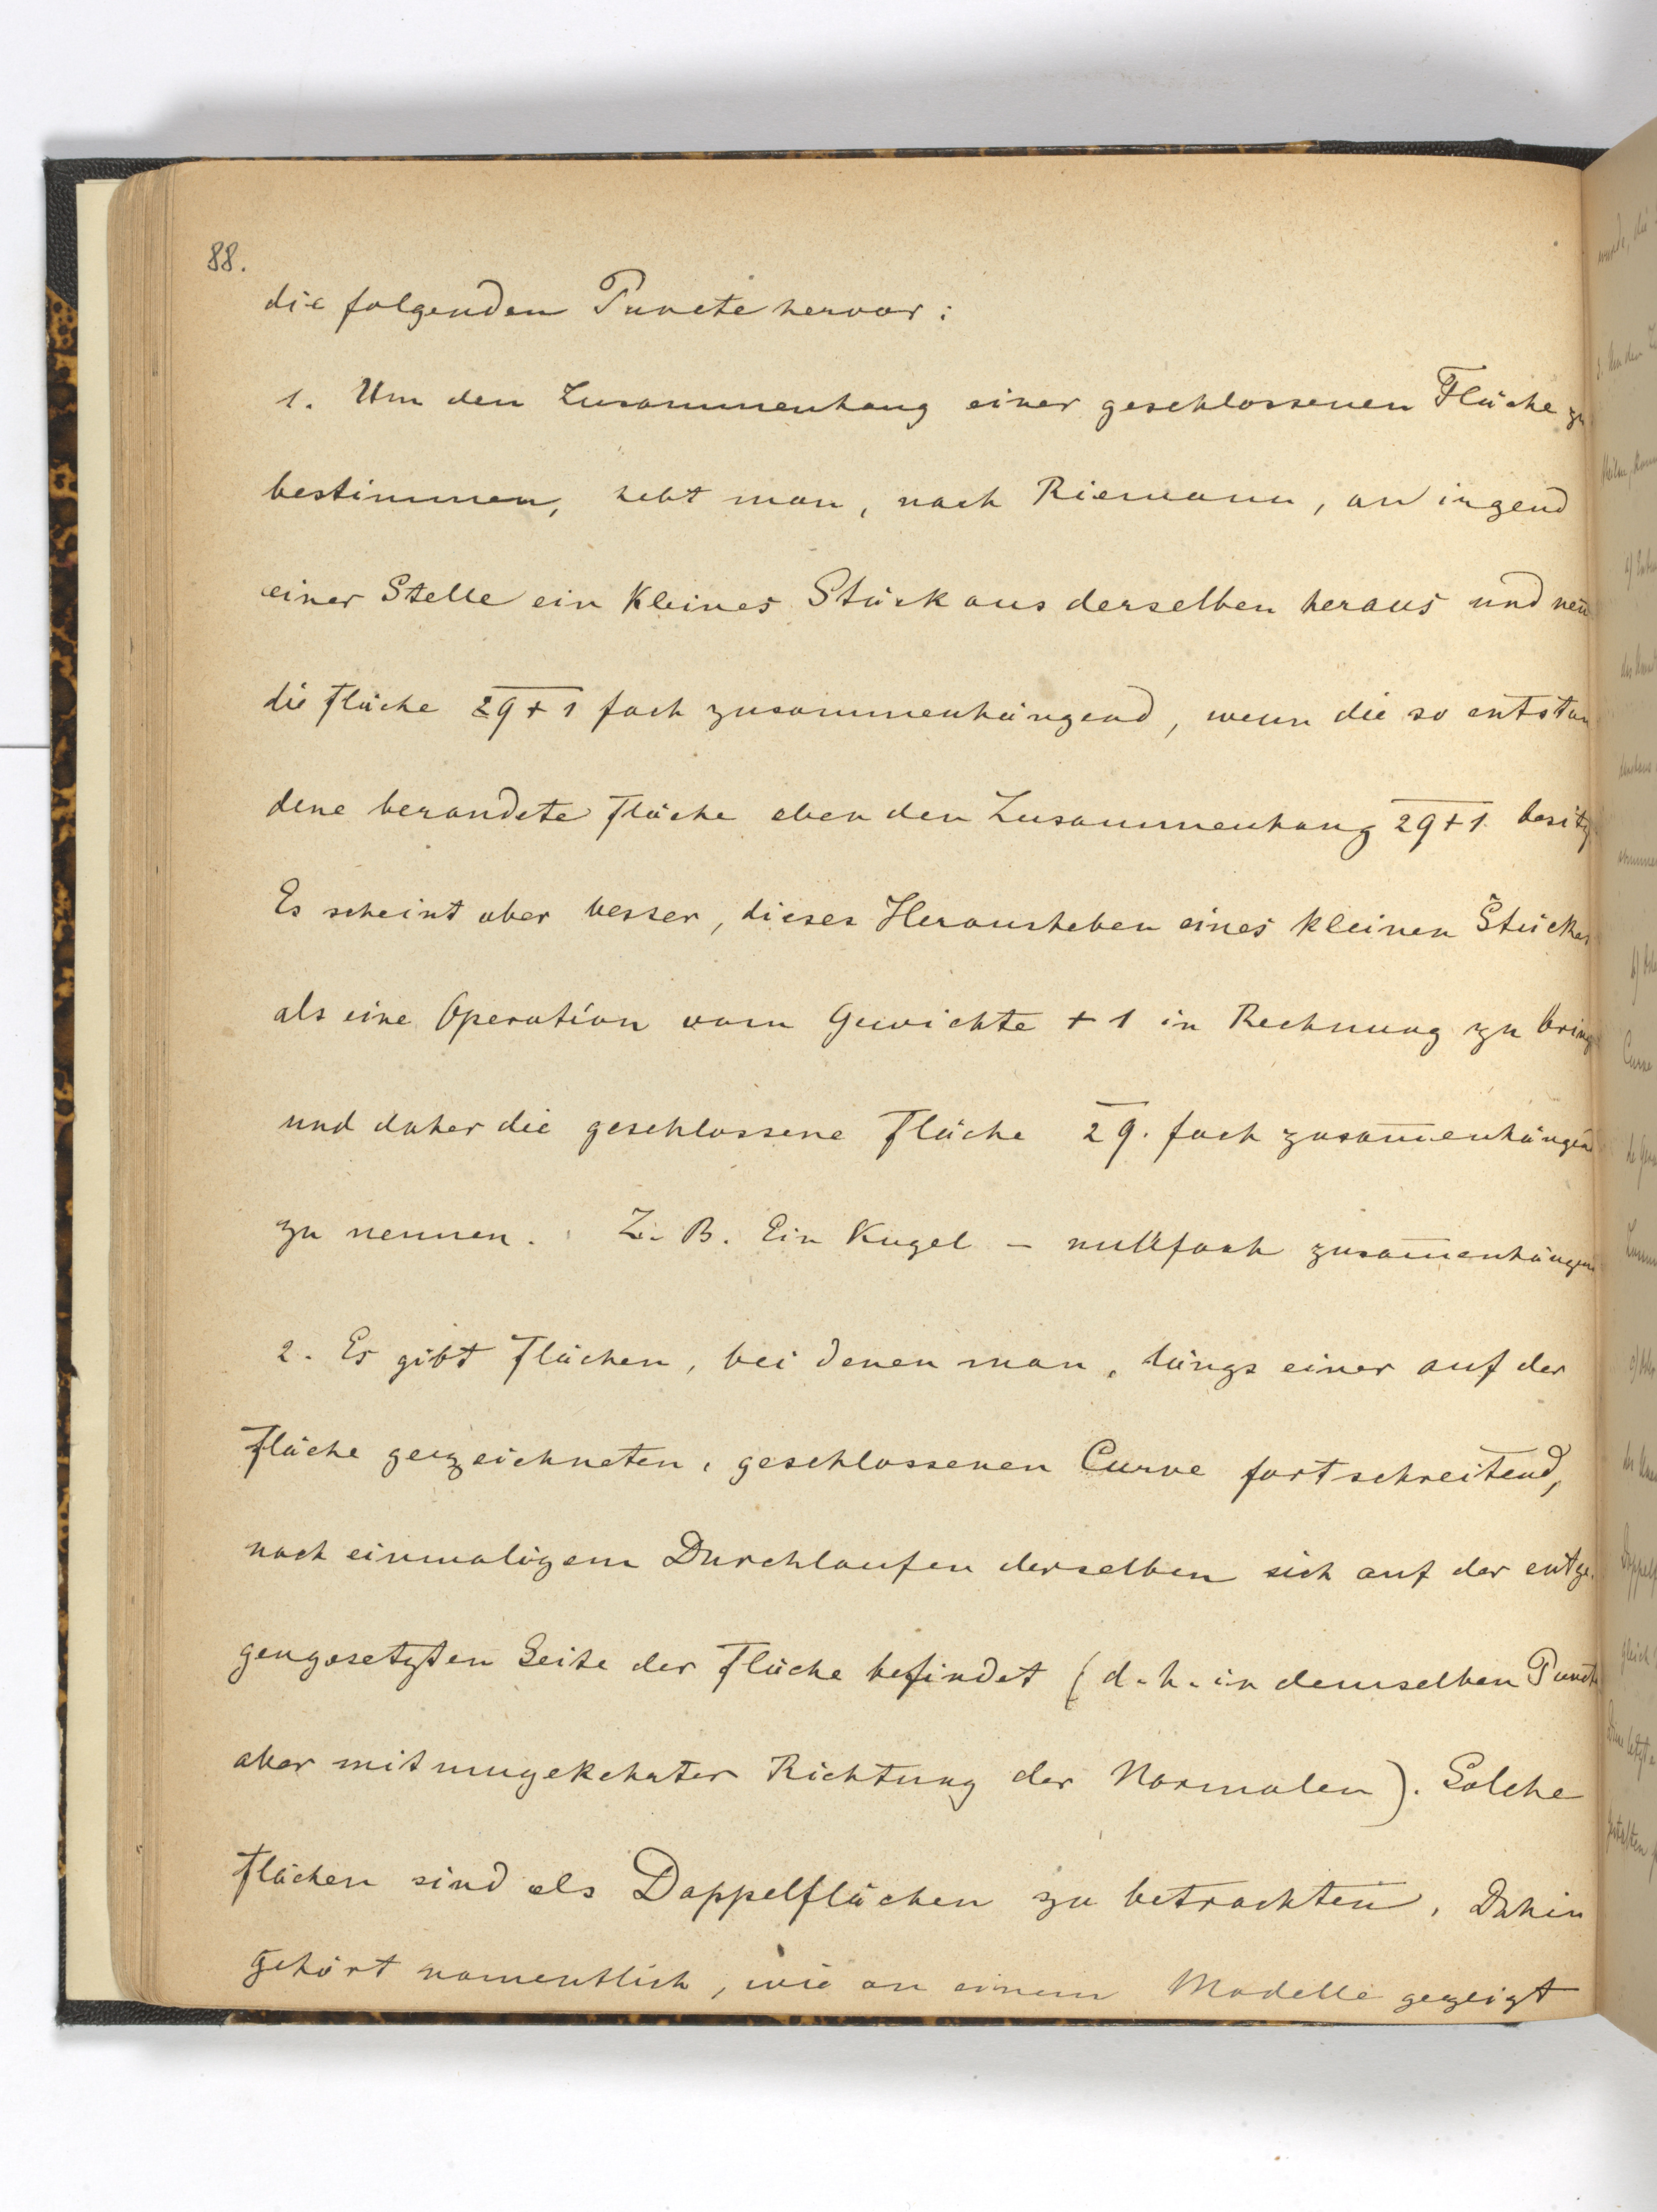 88.
die folgenden Puncte hervor:
1. Um den Zusammenhang einer geschlossenen Fläche zu
bestimmen, hebt man, nach Riemann, an irgend
einer Stelle ein kleines Stück aus derselben heraus und nen̄
die Fläche 2q+1 fach zusammenhängend, wenn die so entstan
dene berandete Fläche eben den Zusammenhang 2q+1 besitz
Es scheint aber besser, dieses Herausheben eines kleinen Stückes
als eine Operation vom Gewichte +1 in Rechnung zu bring
und daher die geschlossene Fläche 2q. fach zusam̄enhängend
zu nennen. Z. B. Ein Kugel – nullfach zusam̄enhängend
2. Es gibt Flächen, bei denen man, längs einer auf der
Fläche gezeichneten, geschlossenen Curve fortschreitend,
nach einmaligem Durchlaufen derselben sich auf der entge-
gengesetzten Seite der Fläche befindet (d. h. in demselben Puncte
aber mit umgekehrter Richtung der Normalen). Solche
Flächen sind als Doppelflächen zu betrachten. Dahin
gehört namentlich, wie an einem Modelle gezeigt